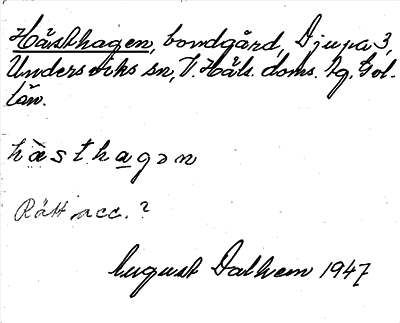 Hästhagen, bondgård, Djupa 3,
Undersviks sn, V. Häls. doms. tg. Gbl.
län.
hæsthagən
Rätt acc.?
August Dalhem 1947